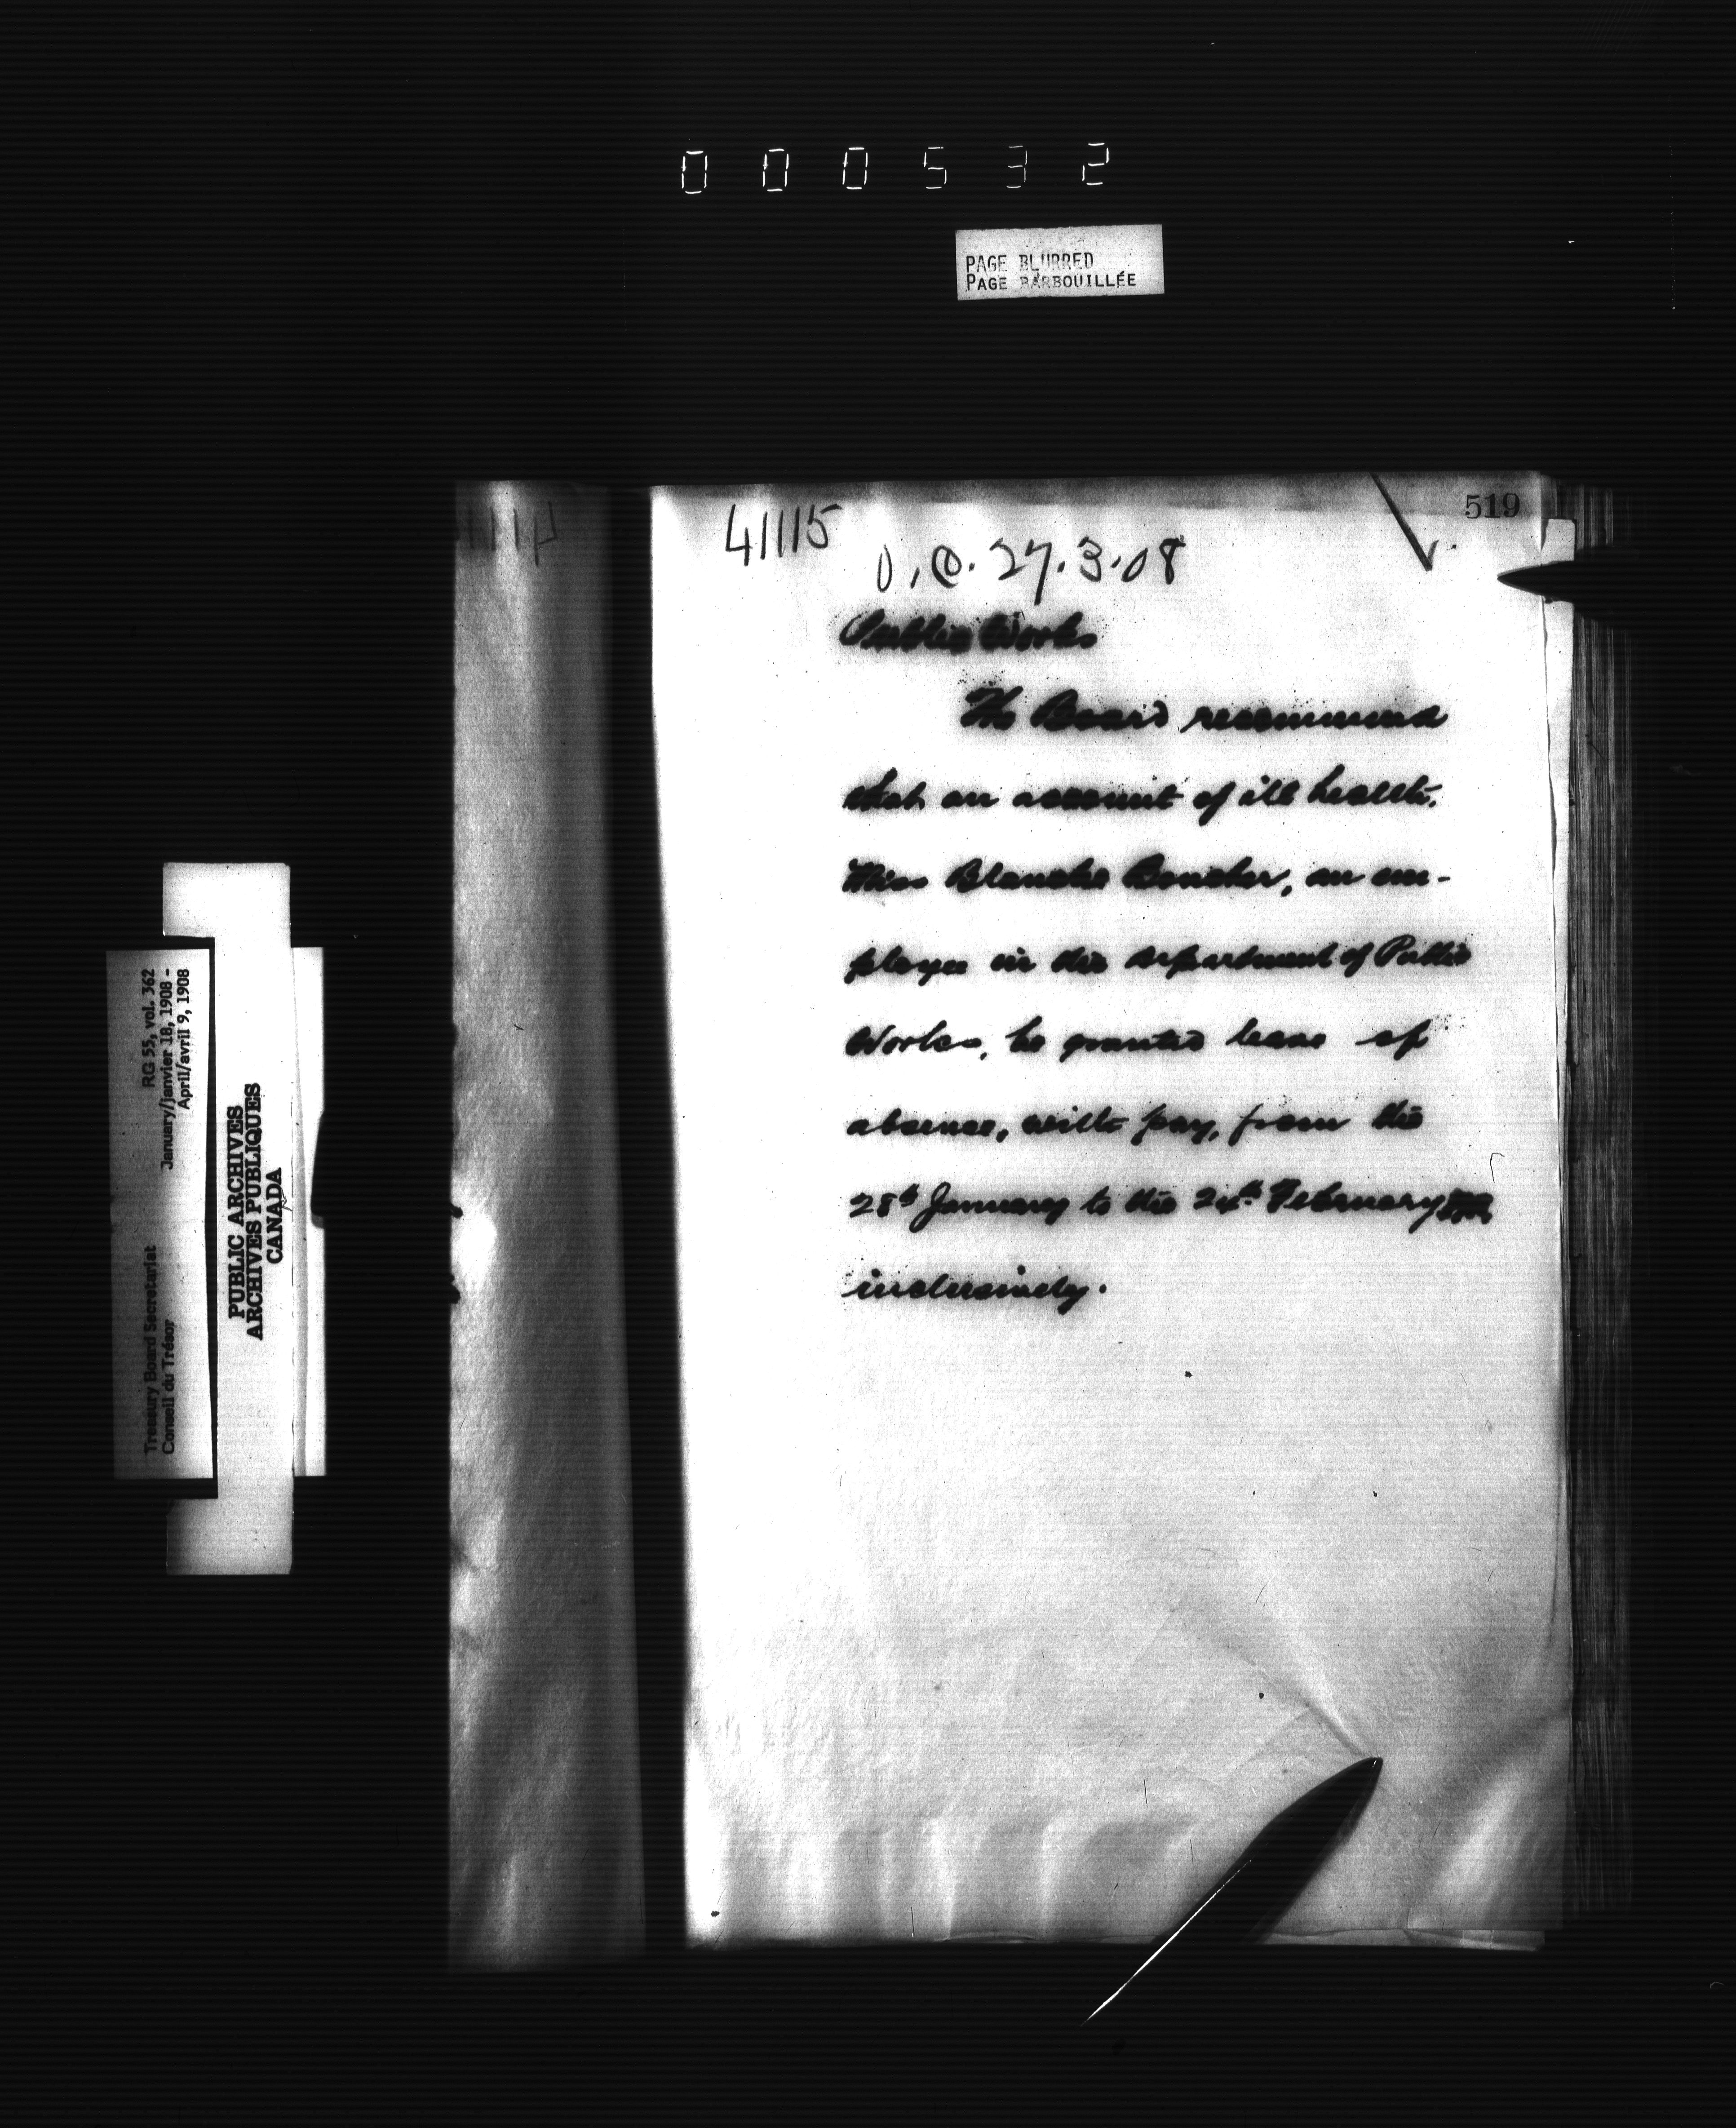 000532
PAGE BLURRED
PAGE BARBOUILLÉE
519
41115
O.C. 27.3.08
Public Works
The Board recommend
that on account of ill health,
Miss Blanche Boucher, an em-
ployee in the department of Public
Works, be granted leave of
absence, with pay, from the
28th January to the 24th February
inclusively.
Treasury Board Secretariat RG 55, vol. 362
Conseil du Trésor January/janvier 18, 1908 -
April/avril 9, 1908
PUBLIC ARCHIVES
ARCHIVES PUBLIQUES
CANADA